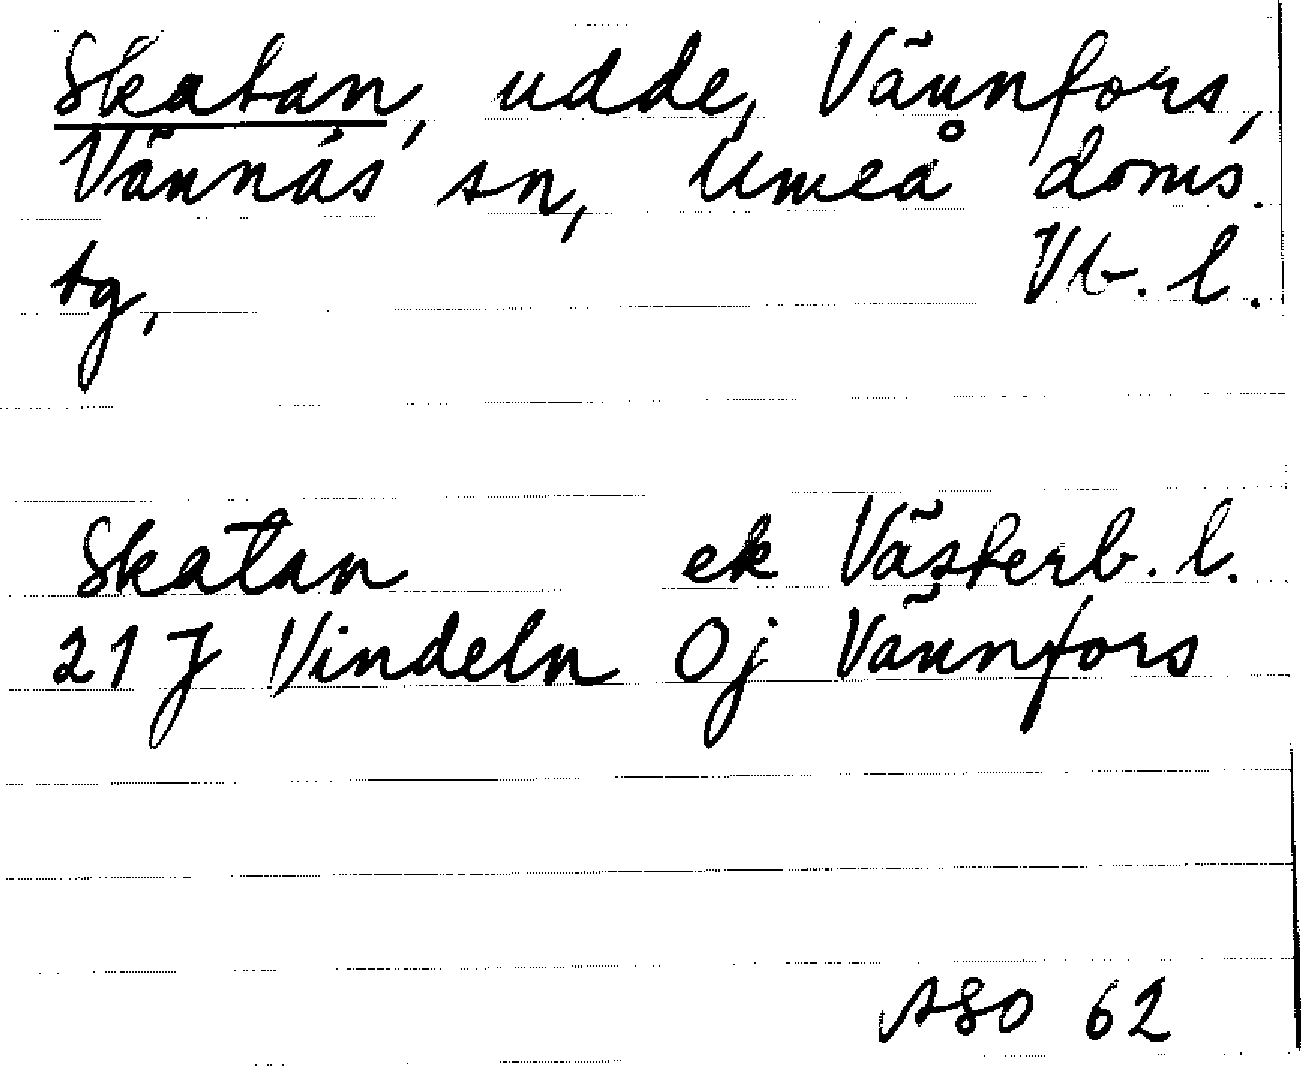 Skatan, udde, Vännfors,
Vännäs sn, Umeå doms.
tg, Vb. l.
Skatan ek Västerb. l.
21 J Vindeln 0j Vännfors
ASO 62